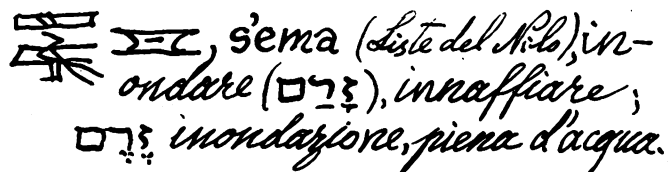 , s'ema (Liste del Nilo), in-
ondare (זָרַם), innaffiare;
זֶרֶם inondazione, piena d'acqua.